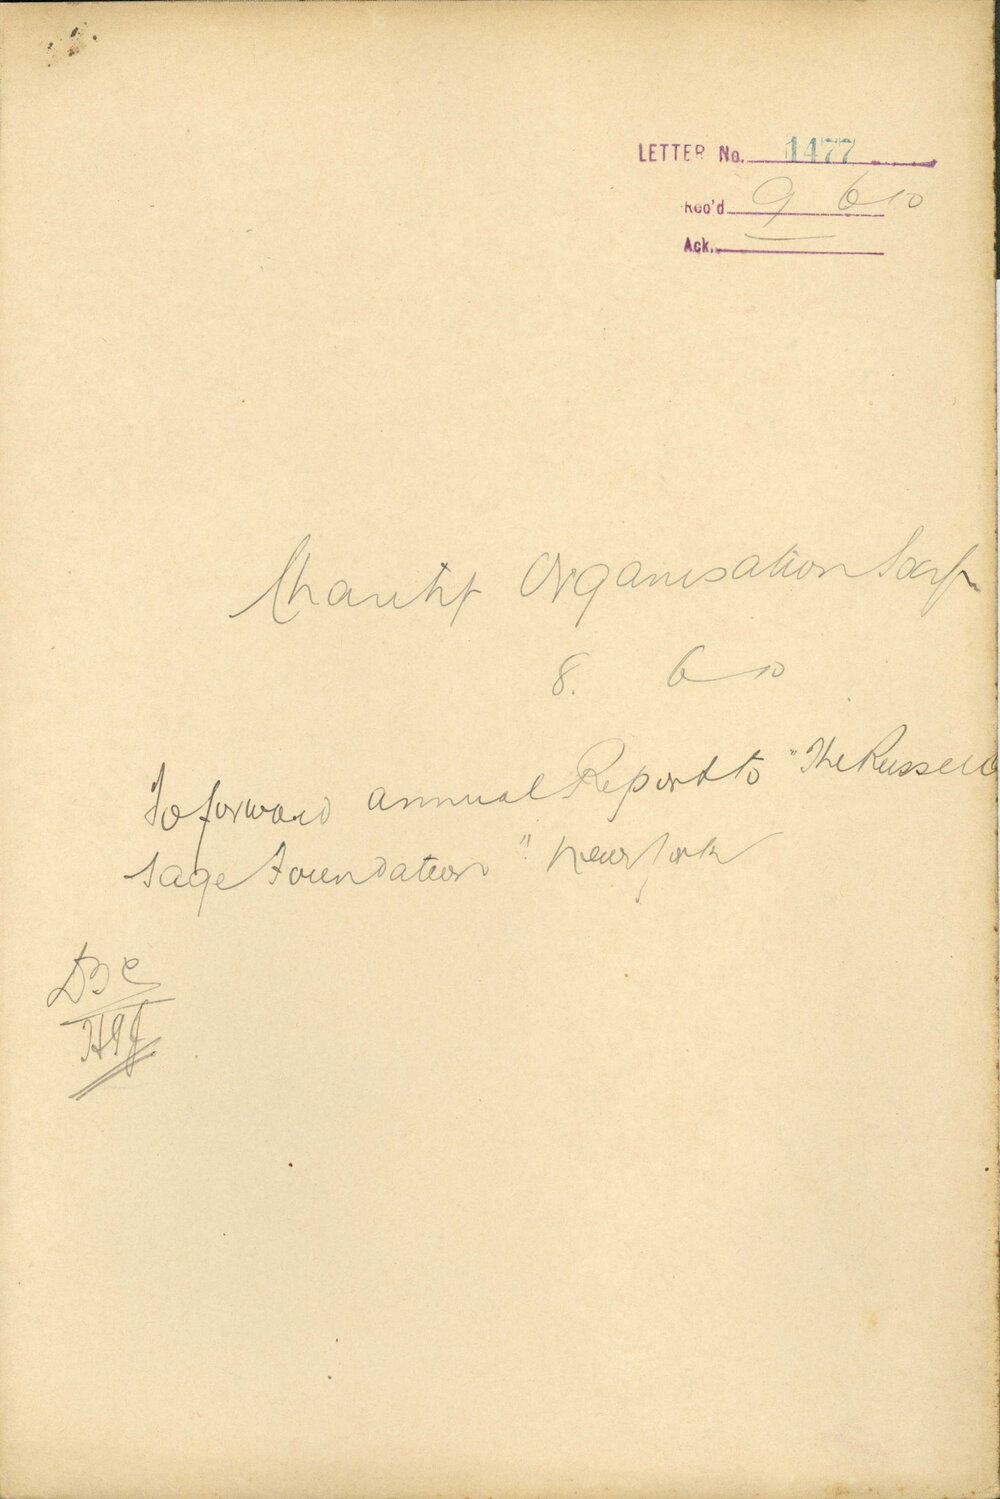 LETTER No. 1477
Rec'd 9 6 10
Ack.
Charity Organisation Socy
8. 6 10
To forward annual Report to "The Russell
Sage Foundation" New York